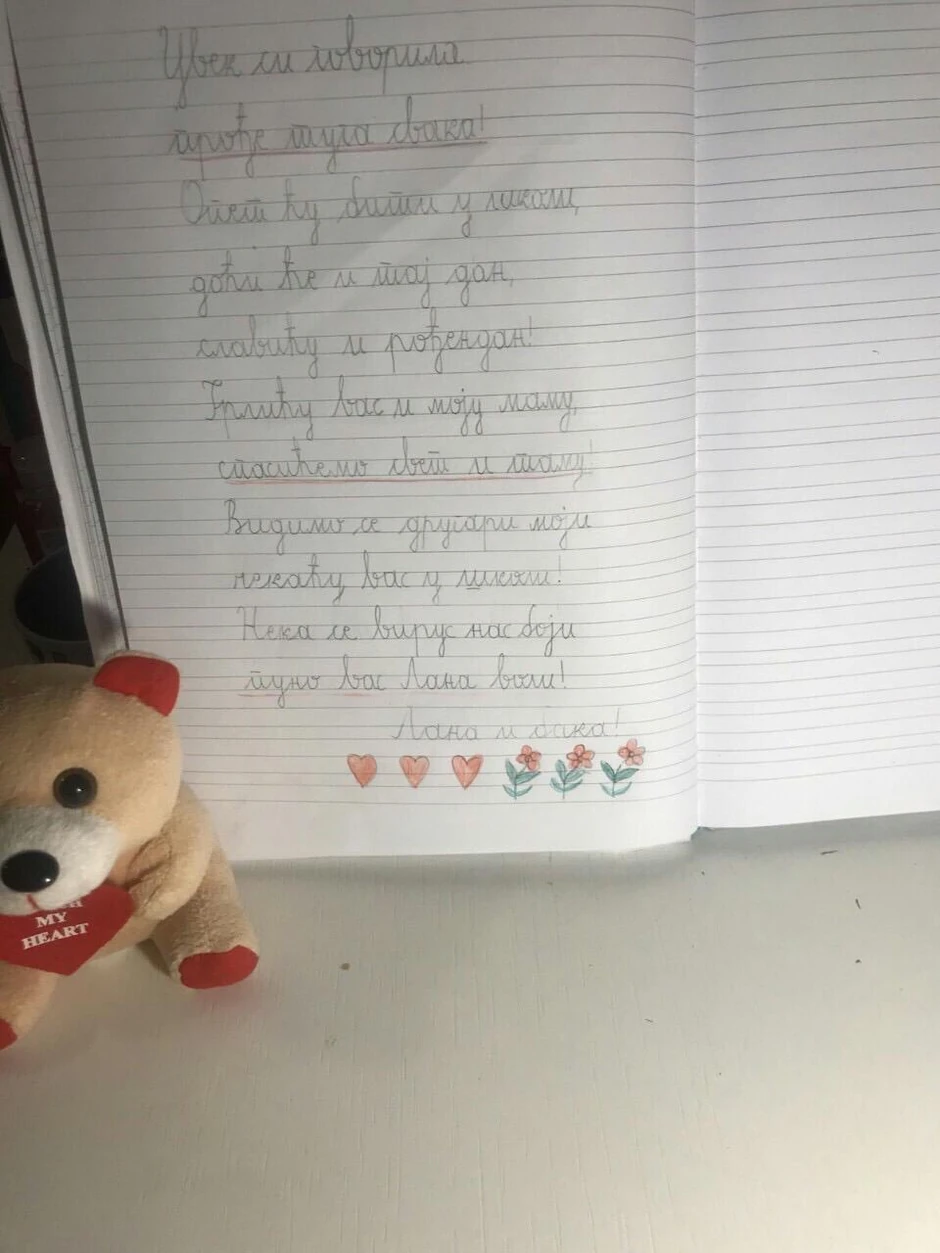 Увек си говорила
прође туга свака!
Опет ћу бити у школи,
доћи ће и тај дан,
славићу и рођендан!
Грлићу вас и моју маму,
спасићемо свет и таму!
Видимо се другари моји
чекаћу вас у школи!
Нека се вирус нас боји
пуно вас Лана воли!
Лана и бака!
MY
HEART